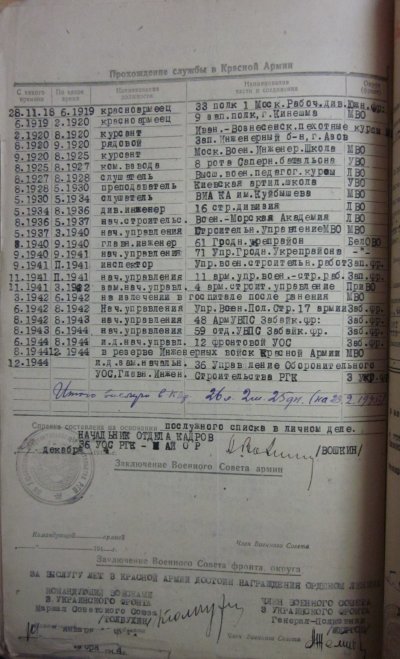 Прохождение службы в Красной Армии
С какого времени По какое время Наименование должности Наименование части и соединения Округ (фронт)
28.11.18 6.1919 красноармеец 33 полк 1 Моск.Рабоч.див. Юж.фр.
6.1919 2.1920 красноармеец 9 зап.полк,г.Кинешма МВО
2.1920 8.1920 курсант Иван.-Вознесенск.пехотные курсы МВО
8.1920 9.1920 рядовой Зап.Инженерный б-н,г.Азов
9.1920 8.1925 курсант Моск.Воен.Инженер.Школа МВО
8.1925 8.1927 ком.взвода 8 рота Саперн.батальона УВО
8.1927 8.1928 слушатель Высш.воен.педагог.курсы ЛВО
8.1928 5.1930 преподаватель Киевская артил.школа УВО
5.1930 5.1934 слушатель ВИА КА им.Куйбышева МВО
5.1934 8.1936 див.инженер 16 стр.дивизия ЛВО
8.1936 5.1937 нач.строительс. Воен.-Морская Академия ЛВО
5.1937 3.1940 нач.управления Строительн.УправлениеМВО МВО
3.1940 9.1940 главн.инженер 61 Гродн.укрепрайон БелОВО
9.1940 9.1941 нач.управления 71 Упр.Гродн.Укрепрайона -"-
9.1941 П.1941 инспектор Упр.воен.строительн.работ Зап.фр.
П.1941 П.1941 нач.управления 11 арм.упр.воен.-стр.раб. Зап.фр.
11.1941 3.1942 зам.нач.управл. 4 арм.строит.управление ПриВО
3.1942 6.1942 на излечении в госпитале после ранения МВО
6.1942 8.1942 Нач.управления Упр.Воен.Пол.Стр.17 армии Заб.фр.
8.1942 8.1943 нач.управления 48 АрмУВПС Забайк.фр: Заб.фр.
8.1943 6.1944 нач.управления 59 отд.УВПС Забайк.фр. Заб.фр.
6.1944 8.1944 и.д.нач.управл. 12 фронтовой УОС Заб.фр.
8.1944 12 1944 в резерве Инженерных войск Красной Армии МВО
12.1944 и.д.зам.начальн. 36 Управление Оборонительного
УОС,Главн.Инжен. Строительства РГК 3 Укр.фр.
Итого выслуги в КА 26л 2м 25дн.
Справка составлена на основании послужного списка в личном деле.
НАЧАЛЬНИК ОТДЕЛА КАДРОВ
36 УОС РГК - МАЙОР /ВОШКИН/
декабря
Заключение Военного Совета армии
Командующий армией Член Военного Совета
Заключение Военного Совета фронта, округа
ЗА ВЫСЛУГУ ЛЕТ В КРАСНОЙ АРМИИ ДОСТОИН НАГРАЖДЕНИЯ ОРДЕНОМ ЛЕНИНА
КОМАНДУЮЩИЙ ВОЙСКАМИ ЧЛЕН ВОЕННОГО СОВЕТА
3 УКРАИНСКОГО ФРОНТА 3 УКРАИНСКОГО ФРОНТА
Маршал Советского Союза Генерал-Полковник
/ТОЛБУХИН/
Член Военного Совета
января